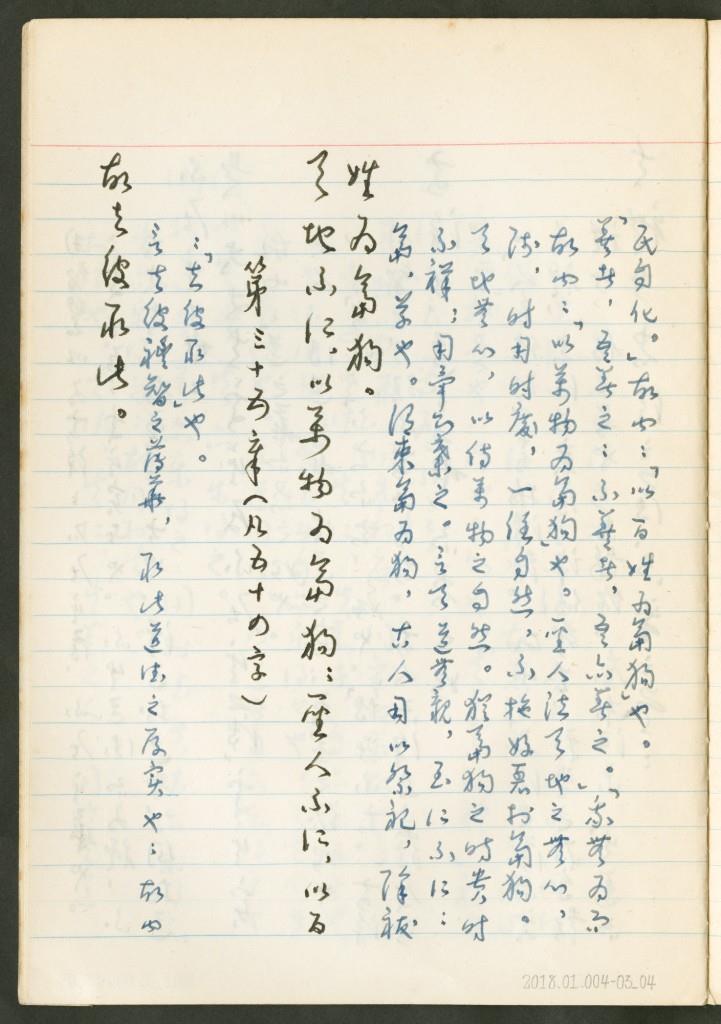 故去彼取此。
言去彼禮智之薄華，取此道德之厚實也；故曰
：「去彼取此」也。
第三十五章（凡五十四字）
天地不仁，以萬物為芻狗；聖人不仁，以百
姓為芻狗。
芻，草也。謂束芻為狗，古人用以祭祀，除祓
不祥；用畢而棄之。言天道無親，至仁不仁：
天地無心，以待萬物之自然。猶芻狗之時貴時
賤，時用時廢，一任自然，不施好惡於芻狗。
故曰：「以萬物為芻狗」也。聖人法天地之無心，
「善者，吾善之；不善者，吾亦善之。」「我無為而
民自化。」故曰：「以百姓為芻狗」也。
2018.01.004-03_04